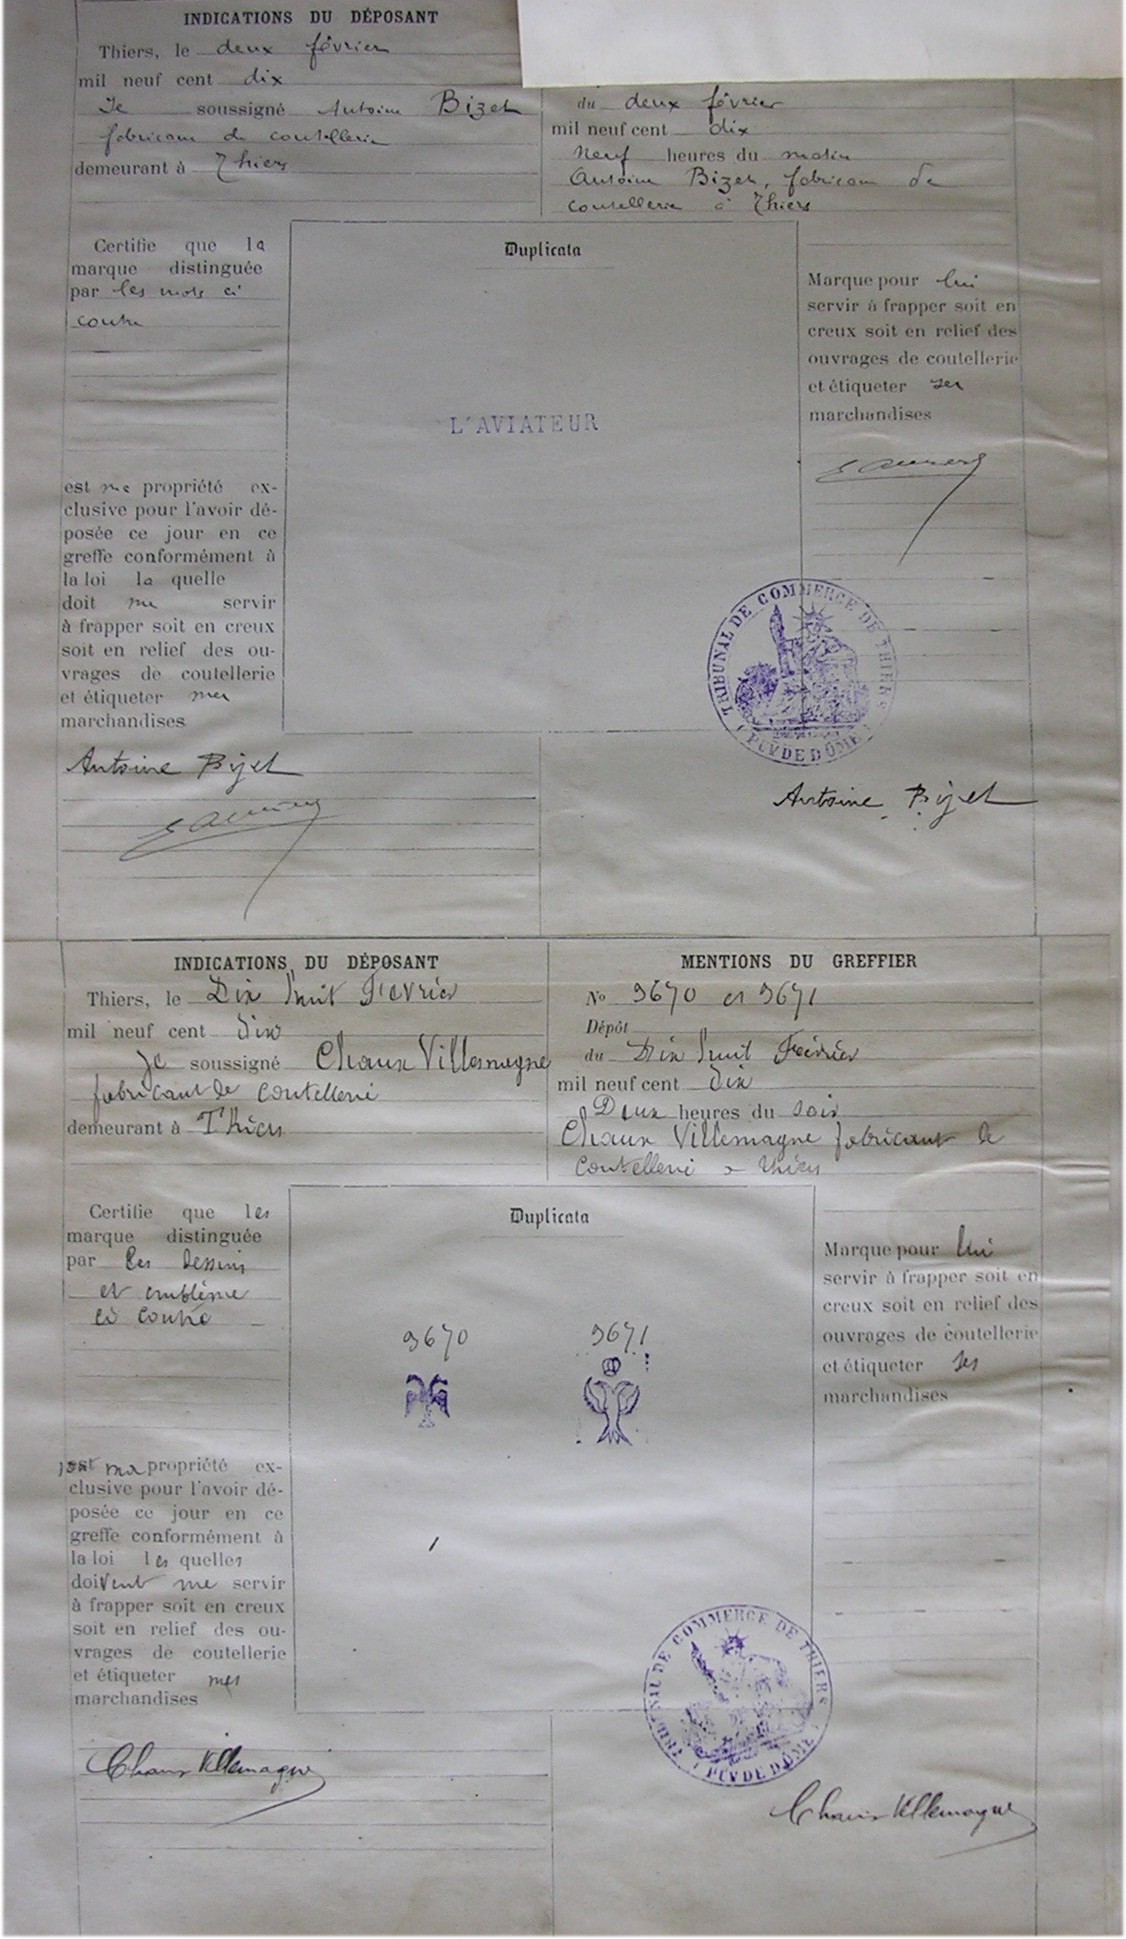 INDICATIONS DU DÉPOSANT
Thiers, le deux février
mil neuf cent dix
Je soussigné Antoine Bizet
fabricant de coutellerie
demeurant à Thiers
du deux février
mil neuf cent dix
Neuf heures du matin
Antoine Bizet, fabricant de
coutellerie à Thiers
Certifie que la
marque distinguée
par les mots ci
contre
est ma propriété ex-
clusive pour l'avoir dé-
posée ce jour en ce
greffe conformément à
la loi la quelle
doit me servir
à frapper soit en creux
soit en relief des ou-
vrages de coutellerie
et étiqueter mes
marchandises
Duplicata
L'AVIATEUR
Marque pour lui
servir à frapper soit en
creux soit en relief des
ouvrages de coutellerie
et étiqueter ses
marchandises
TRIBUNAL DE COMMERCE DE THIERS
(PUY DE DÔME)
Antoine Bizet
Antoine Bizet
INDICATIONS DU DÉPOSANT
Thiers, le Dix huit Février
mil neuf cent dix
Je soussigné Chaux Villemagne
fabricant de coutellerie
demeurant à Thiers
MENTIONS DU GREFFIER
No 9670 et 9671
Dépôt
du Dix huit Février
mil neuf cent dix
Deux heures du soir
Chaux Villemagne fabricant de
coutellerie à Thiers
Certifie que les
marque distinguée
par les dessins
et emblème
ci contre
sont ma propriété ex-
clusive pour l'avoir dé-
posée ce jour en ce
greffe conformément à
la loi les quelles
doivent me servir
à frapper soit en creux
soit en relief des ou-
vrages de coutellerie
et étiqueter mes
marchandises
Duplicata
9670 9671
Marque pour lui
servir à frapper soit en
creux soit en relief des
ouvrages de coutellerie
et étiqueter ses
marchandises
TRIBUNAL DE COMMERCE DE THIERS
(PUY DE DÔME)
Chaux Villemagne
Chaux Villemagne